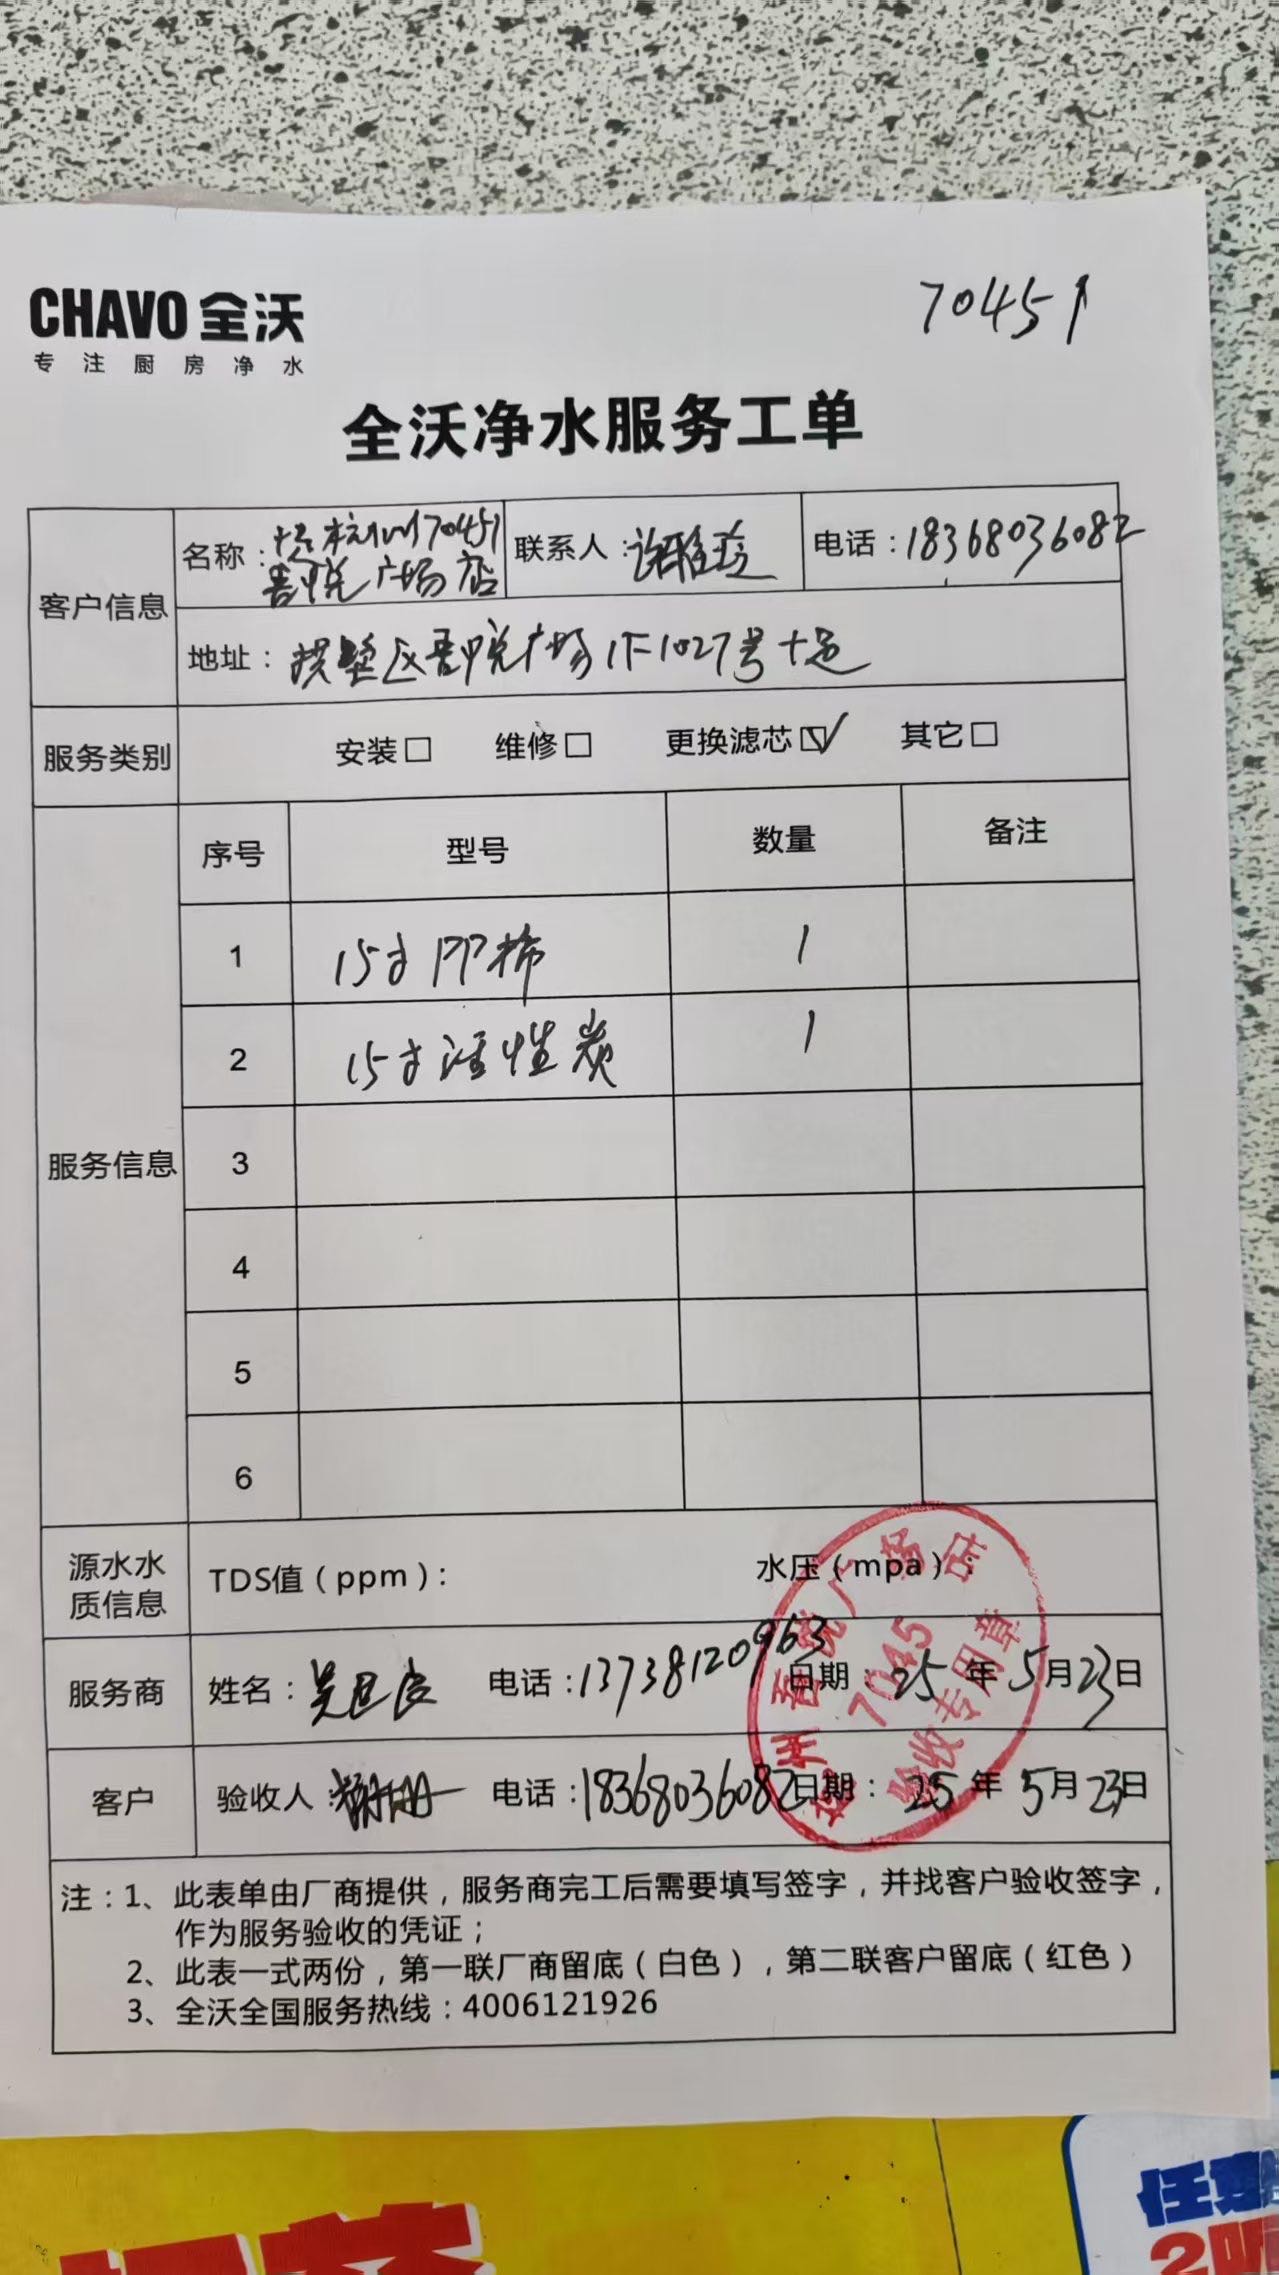 CHAVO 全沃
专注厨房净水
70451
全沃净水服务工单
客户信息
名称：十足杭州70451
吾悦广场店
联系人：谢雅玲
电话：18368036082
地址：拱墅区吾悦广场1F1027号十足
服务类别 安装□ 维修□ 更换滤芯☑ 其它□
服务信息
序号 型号 数量 备注
1 15寸PP棉 1
2 15寸活性炭 1
3
4
5
6
源水水质信息 TDS值（ppm）： 水压（mpa）：
服务商 姓名： 电话：13738120963 日期：25年5月23日
客户 验收人： 电话：18368036082 日期：25年5月23日
杭州吾悦广场店
7045
验收专用章
注：1、此表单由厂商提供，服务商完工后需要填写签字，并找客户验收签字，
作为服务验收的凭证；
2、此表一式两份，第一联厂商留底（白色），第二联客户留底（红色）
3、全沃全国服务热线：4006121926
任意